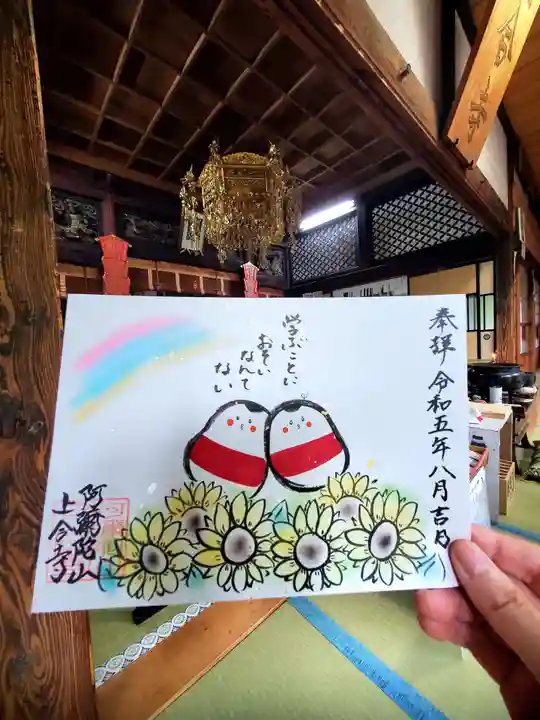 奉拝 令和五年八月吉日
学ぶことに
おそい
なんて
ない
阿弥陀山
上合寺